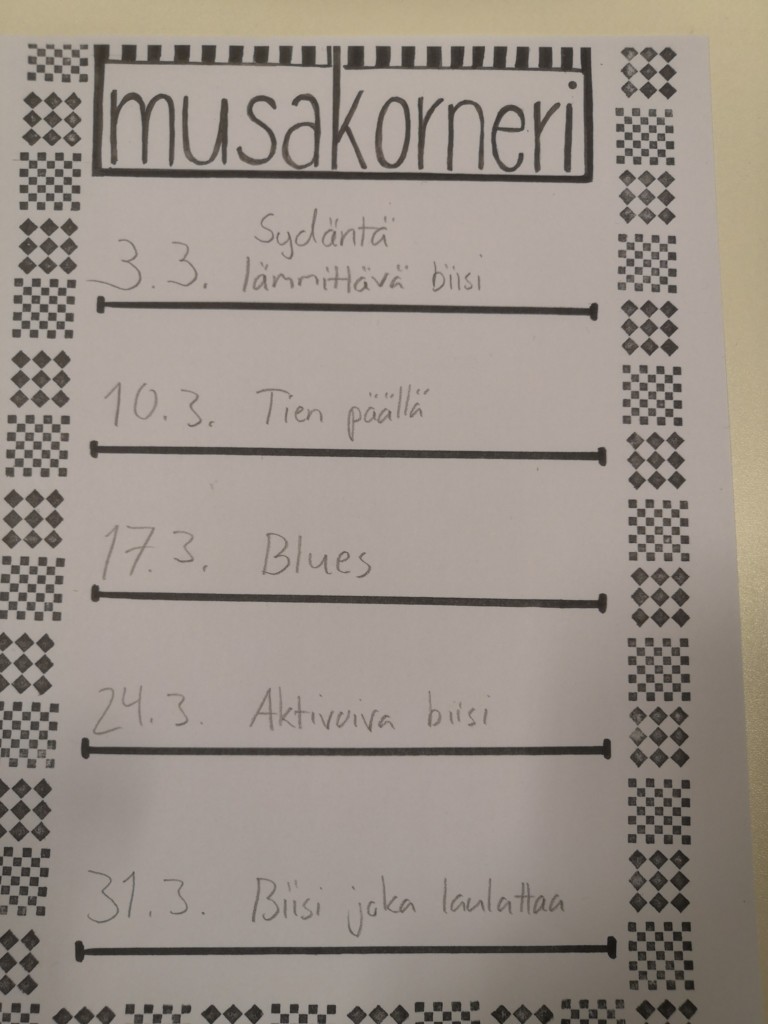 musakorneri
3.3. Sydäntä
lämmittävä biisi
10.3. Tien päällä
17.3. Blues
24.3. Aktivoiva biisi
31.3. Biisi joka laulattaa